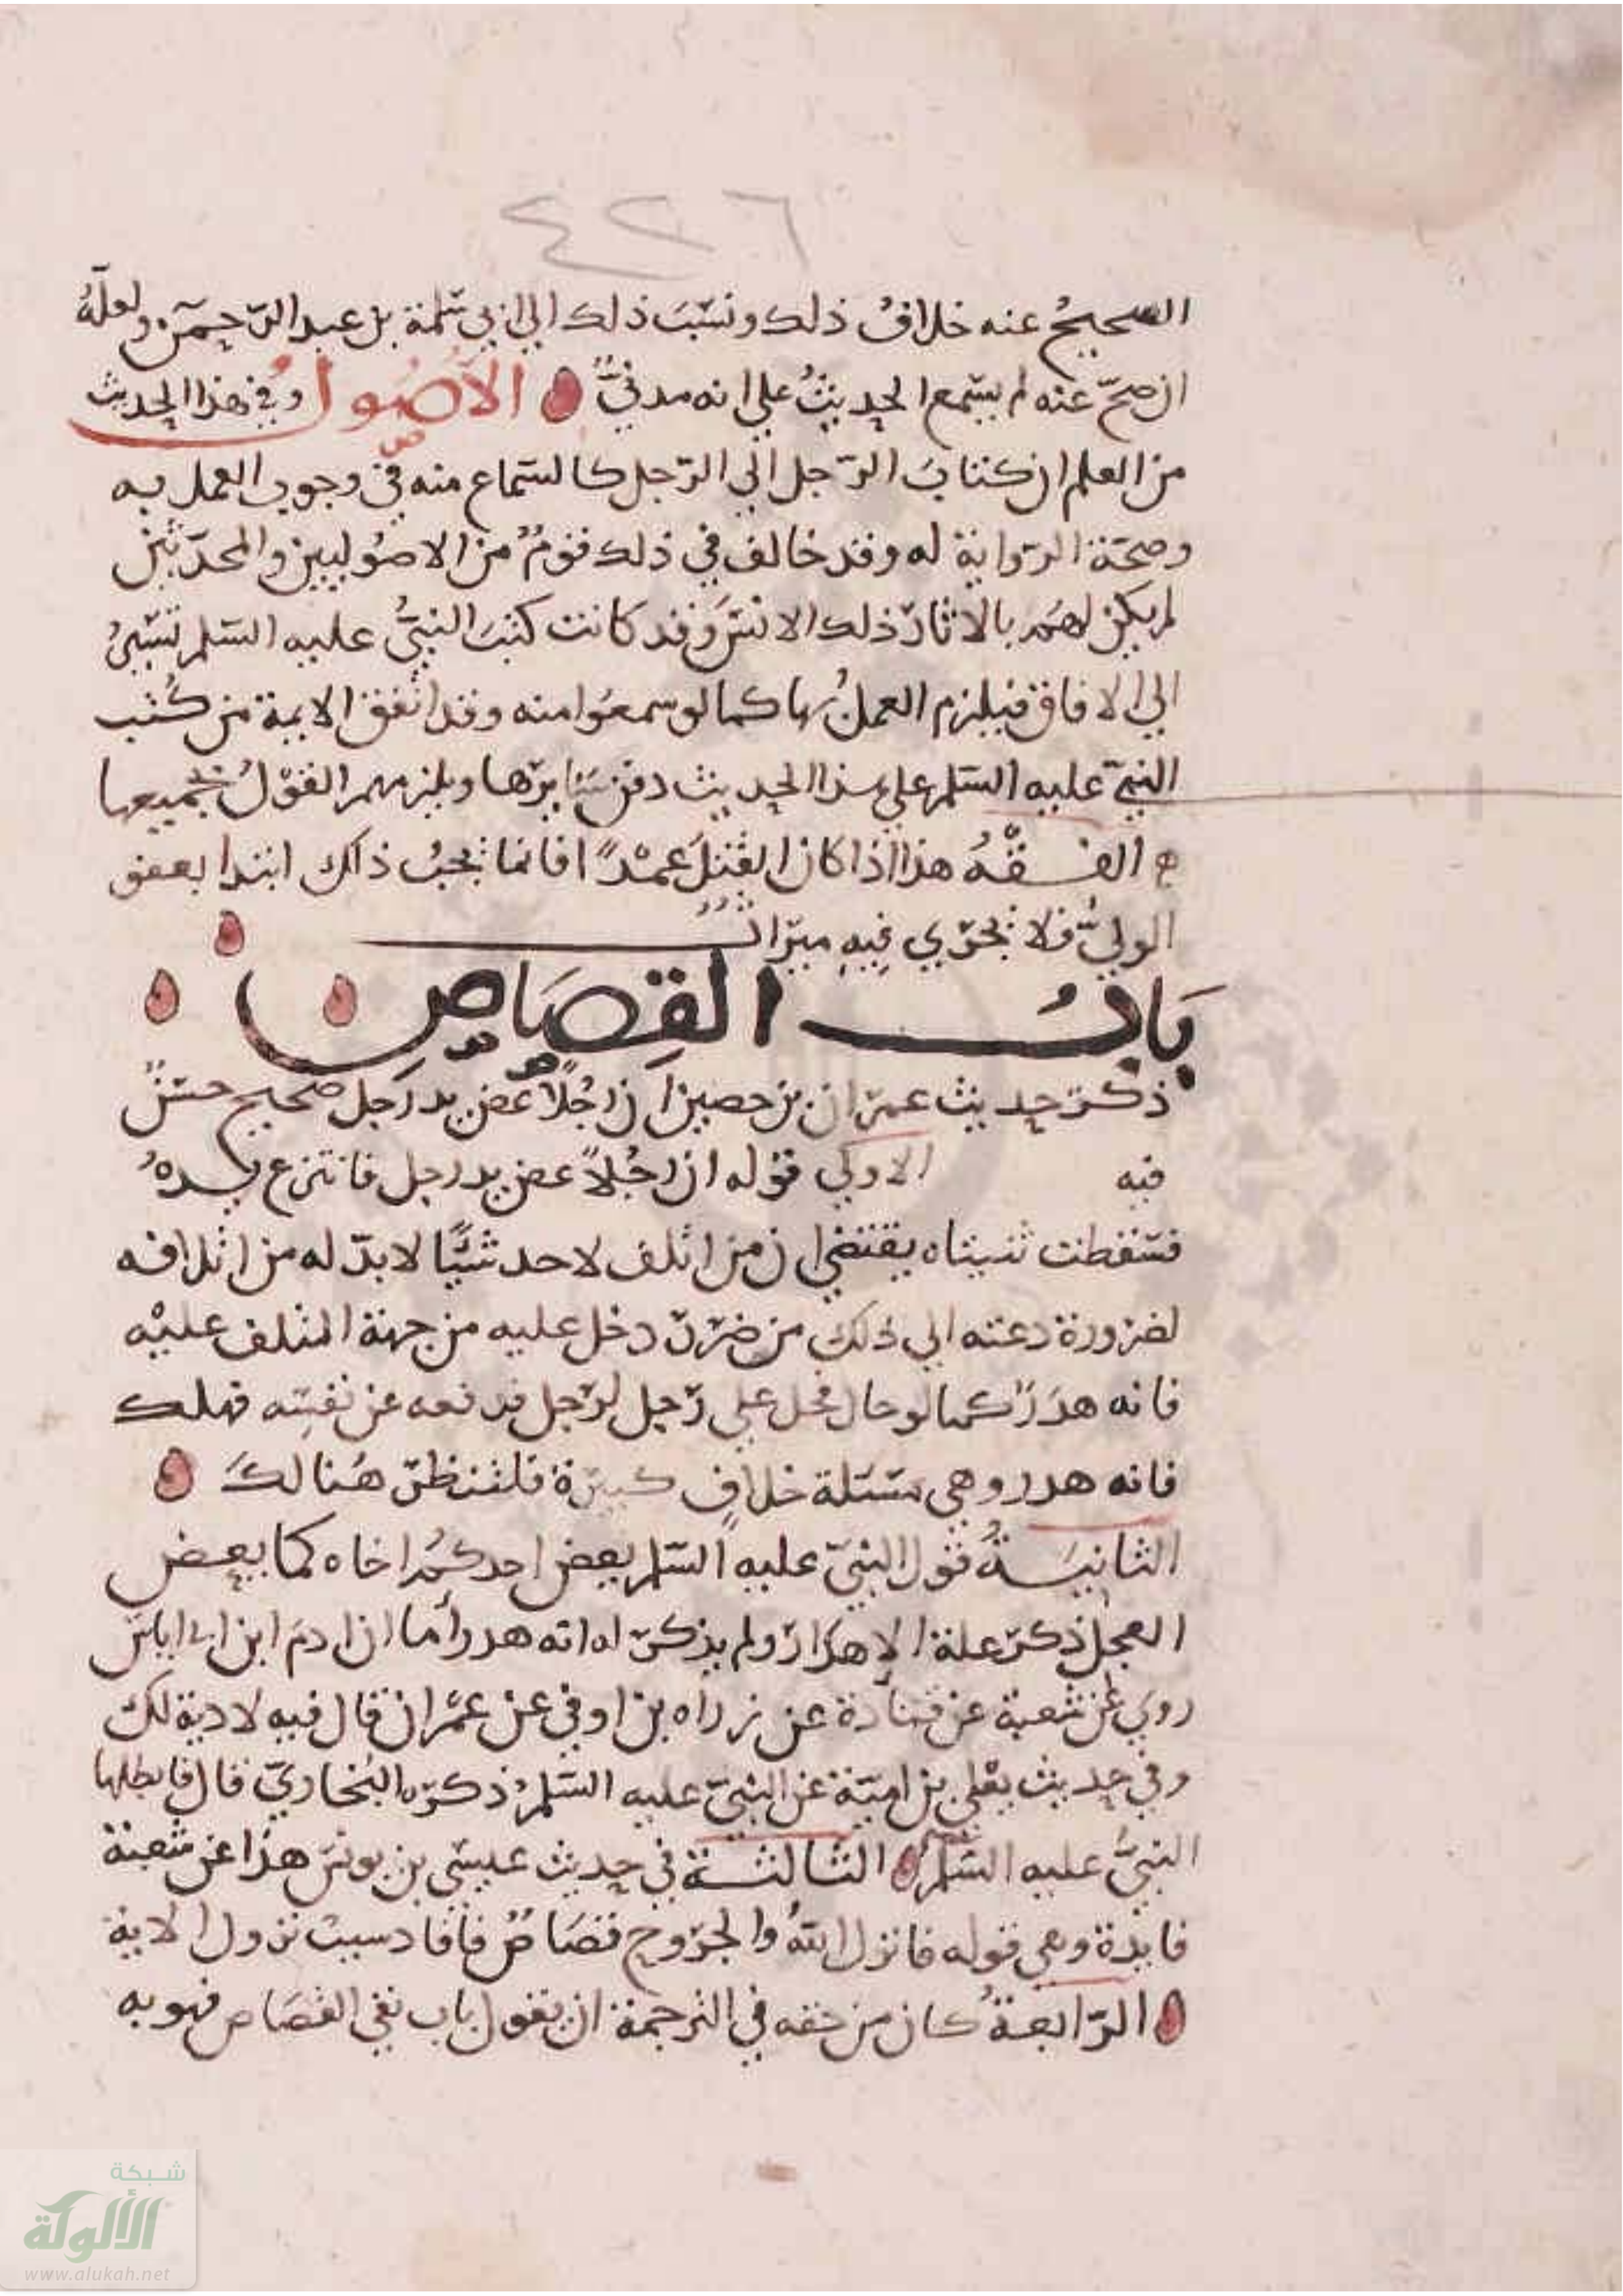 ٤٢٦
الصحيحُ عنه خلافُ ذلك ونسَبَ ذلك الي ابي سَلمة بن عبد الرّحمن ولعلّهُ
ان صحّ عنه لم يسمع الحديثُ علي انه مدنيٌّ الاصُول وفي هذا الحديث
من العلم ان كتابَ الرّجل الي الرّجل كالسماع منه في وجوب العمل به
وصحّة الرّواية له وقد خالف في ذلك قومٌ من الاصُوليين والمحدّثين
لم يكن لهم بالاثار ذلك الانس وقد كانت كتبَ النبيُّ عليه السّلم تسيرُ
الي الافاق فيلزم العملُ بها كما لو سمعوا منه وقد اتفق الايمة من كُتب
النبيّ عليه السّلم علي هذا الحديث دون سَايرها ويلزمهم القوْلُ بجميعها
الفقْهُ هذا اذا كان القتلَ عمْدًا فانما يجبُ ذلك ابتدا بعفو
الوليّ فلا يجري فيهِ ميراثٌ
بَابُ القِصَاصِ
ذكر حديث عمران بن حصين ان رجُلًا عض يد رَجل صحيح حسَنٌ
فيه الاولي قوله ان رجُلاً عض يد رجل فانتزع يدهُ
فسَقطت ثنيتاه يقتضي ان من اتلف لاحد شيًّا لا بدّ له من اتلافه
لضرورة دعته الي ذلك من ضرر دخل عليه من جهة المتلف عليْه
فانه هدَرٌ كما لو صال فحل علي رَجل لرّجل فدفعه عن نفسِه فهلك
فانه هدر وهي مسَئلة خلافٍ كبيرة فلتنظر هُنالكَ
الثانيَــةُ قول النبيّ عليه السّلم يعض احدكمُ اخاه كما يعض
العجل ذكر علة الاهدار ولم يذكر له انه هدر أما ان ادمَ ابن ابي اياس
رويَ عن شعبة عن قتادة عن زراره بن اوفي عن عمران قال فيه لا دية لك
وفي حديث يعْلي بن اميّة عن النبيّ عليه السّلم ذكره البُخاريّ قال فابطلها
النبيُّ عليه السّلم الثالثــة في حديث عيسَي بن يونس هذا عن شعبة
فايدة وهي قوله فانزل اللهُ والجروح قصَاصٌ فافاد سببَ نزول الاية
الرّابعةُ كان من حقه في الترجمة ان يقول باب نفي القصَاص فهو به
شبكة
الألوكة
www.alukah.net